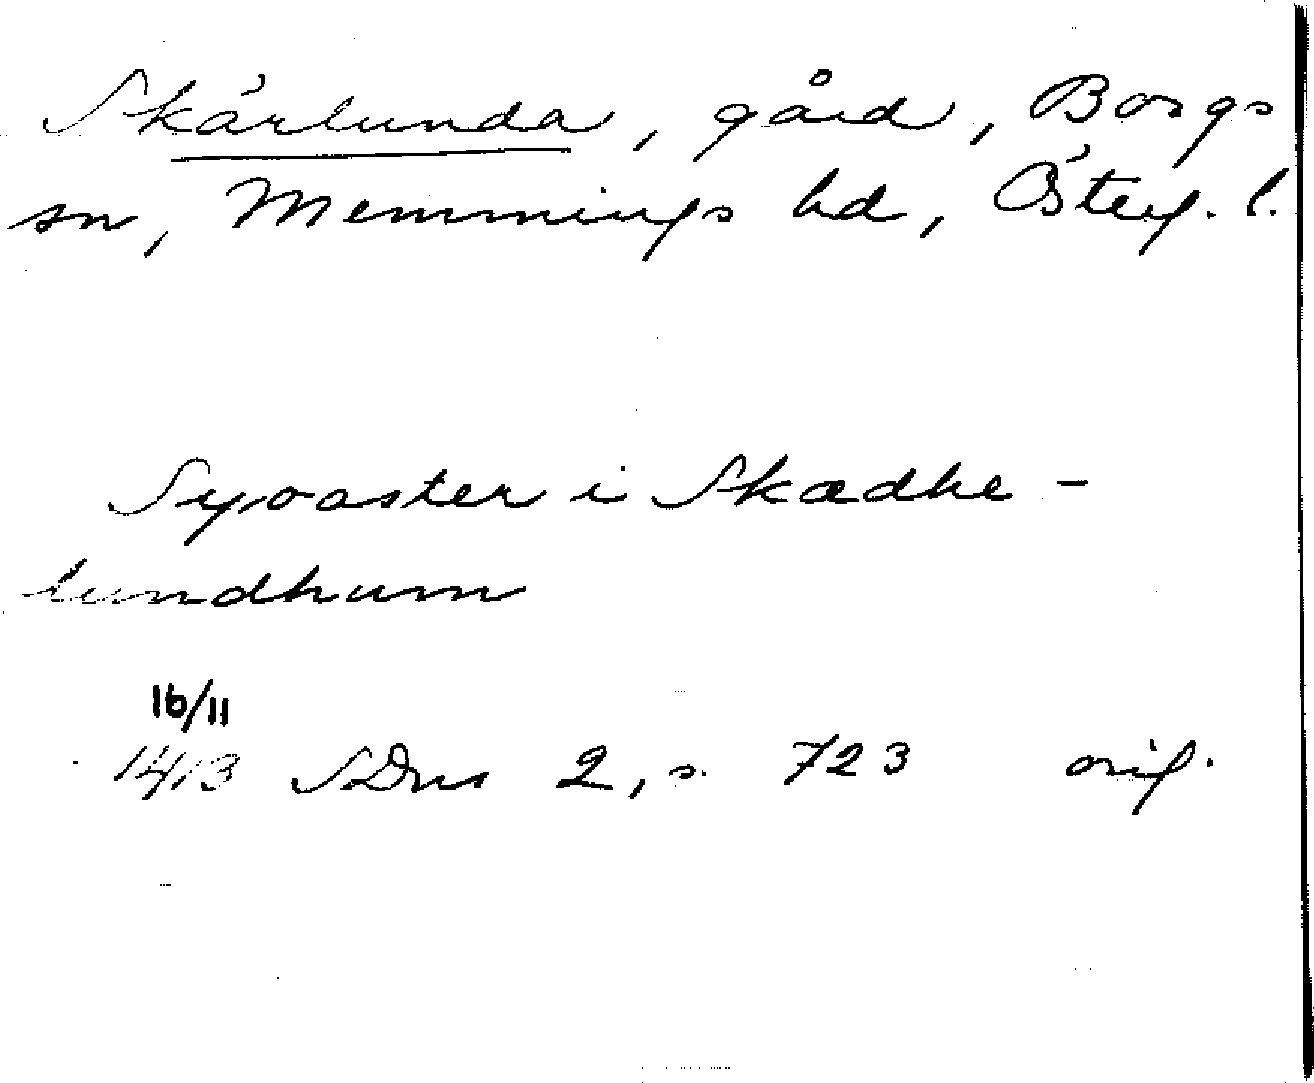 Skärlunda, gård, Borgs
sn, Memmings hd, Österg. l.
Syvaster i Skædhe-
lundhum
16/11
1413 SDns 2, s. 723 orig.